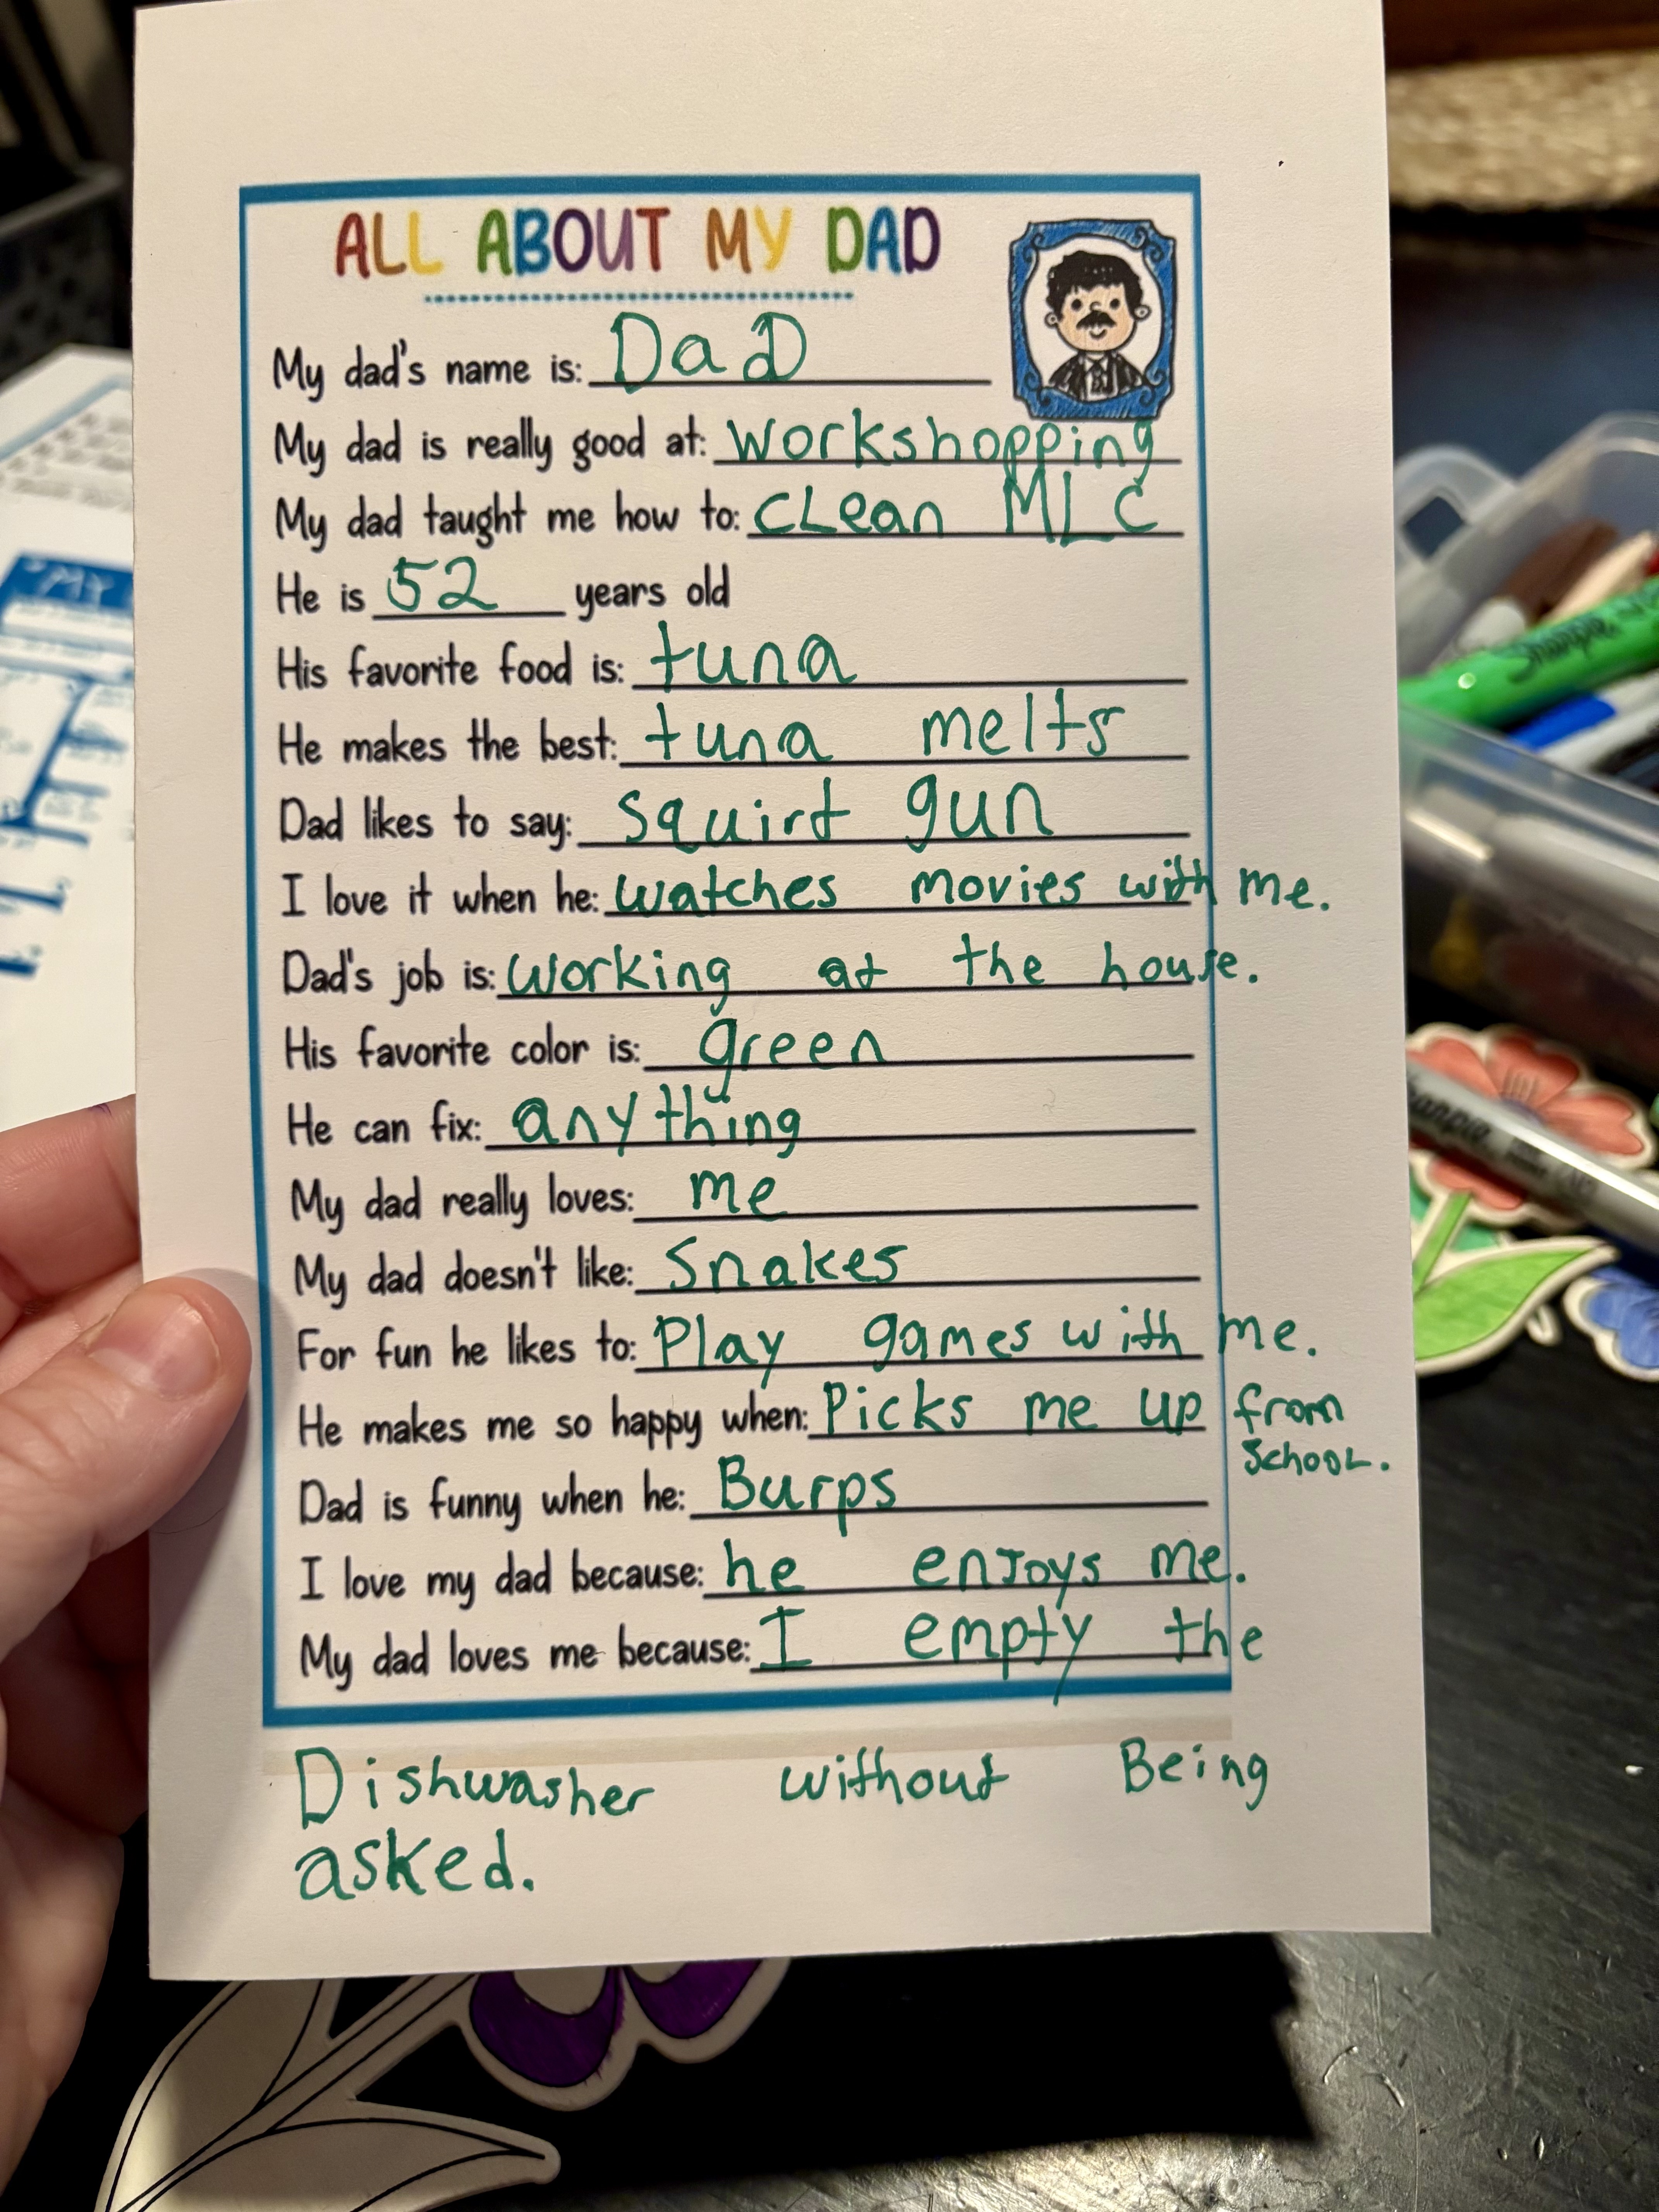 ALL ABOUT MY DAD
My dad's name is: DaD
My dad is really good at: workshopping
My dad taught me how to: cLean MLC
He is 52 years old
His favorite food is: tuna
He makes the best: tuna melts
Dad likes to say: squirt gun
I love it when he: watches movies with me.
Dad's job is: working at the house.
His favorite color is: green
He can fix: anything
My dad really loves: me
My dad doesn't like: Snakes
For fun he likes to: Play games with me.
He makes me so happy when: Picks me up from
SchooL.
Dad is funny when he: Burps
I love my dad because: he enJoys me.
My dad loves me because: I empty the
Dishwasher without Being
asked.
Sharpie